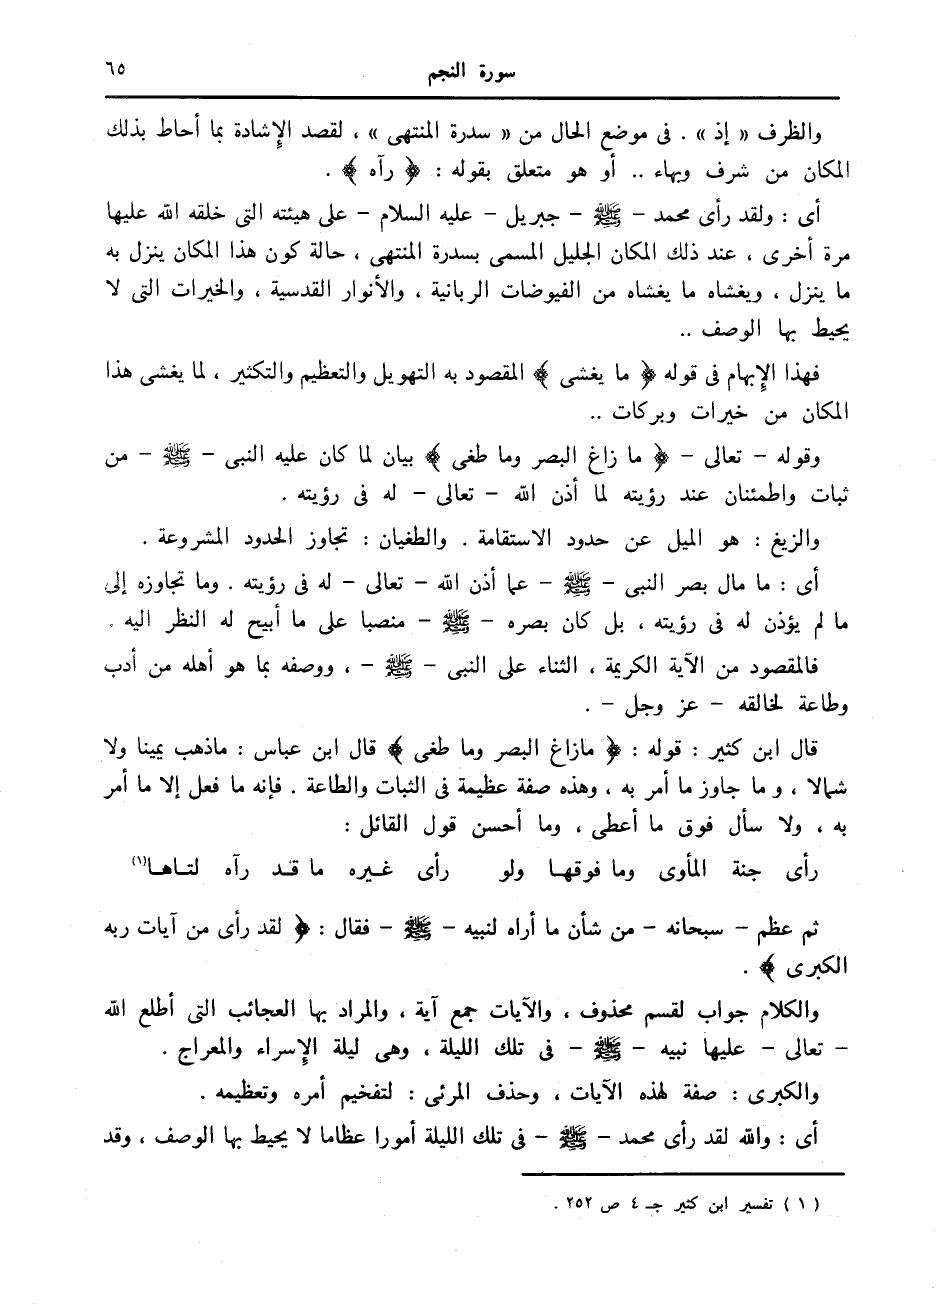 سورة النجم ٦٥
والظرف « إذ » . فى موضع الحال من « سدرة المنتهى » ، لقصد الإشادة بما أحاط بذلك
المكان من شرف وبهاء .. أو هو متعلق بقوله : ﴿ رآه ﴾ .
أى : ولقد رأى محمد – ﷺ – جبريل – عليه السلام – على هيئته التى خلقه الله عليها
مرة أخرى ، عند ذلك المكان الجليل المسمى بسدرة المنتهى ، حالة كون هذا المكان ينزل به
ما ينزل ، ويغشاه ما يغشاه من الفيوضات الربانية ، والأنوار القدسية ، والخيرات التى لا
يحيط بها الوصف ..
فهذا الإبهام فى قوله ﴿ ما يغشى ﴾ المقصود به التهويل والتعظيم والتكثير ، لما يغشى هذا
المكان من خيرات وبركات ..
وقوله – تعالى – ﴿ ما زاغ البصر وما طغى ﴾ بيان لما كان عليه النبى – ﷺ – من
ثبات واطمئنان عند رؤيته لما أذن الله – تعالى – له فى رؤيته .
والزيغ : هو الميل عن حدود الاستقامة . والطغيان : تجاوز الحدود المشروعة .
أى : ما مال بصر النبى – ﷺ – عما أذن الله – تعالى – له فى رؤيته . وما تجاوزه إلى
ما لم يؤذن له فى رؤيته ، بل كان بصره – ﷺ – منصبا على ما أبيح له النظر اليه .
فالمقصود من الآية الكريمة ، الثناء على النبى – ﷺ – ، ووصفه بما هو أهله من أدب
وطاعة لخالقه – عز وجل – .
قال ابن كثير : قوله : ﴿ مازاغ البصر وما طغى ﴾ قال ابن عباس : ماذهب يمينا ولا
شمالا ، و ما جاوز ما أمر به ، وهذه صفة عظيمة فى الثبات والطاعة . فإنه ما فعل إلا ما أمر
به ، ولا سأل فوق ما أعطى ، وما أحسن قول القائل :
رأى جنة المأوى وما فوقهـا ولو رأى غـيره ما قـد رآه لتـاهـا(١)
ثم عظم – سبحانه – من شأن ما أراه لنبيه – ﷺ – فقال : ﴿ لقد رأى من آيات ربه
الكبرى ﴾ .
والكلام جواب لقسم محذوف ، والآيات جمع آية ، والمراد بها العجائب التى أطلع الله
– تعالى – عليها نبيه – ﷺ – فى تلك الليلة ، وهى ليلة الإسراء والمعراج .
والكبرى : صفة لهذه الآيات ، وحذف المرئى : لتفخيم أمره وتعظيمه .
أى : والله لقد رأى محمد – ﷺ – فى تلك الليلة أمورا عظاما لا يحيط بها الوصف ، وقد
( ١ ) تفسير ابن كثير جـ ٤ ص ٢٥٢ .